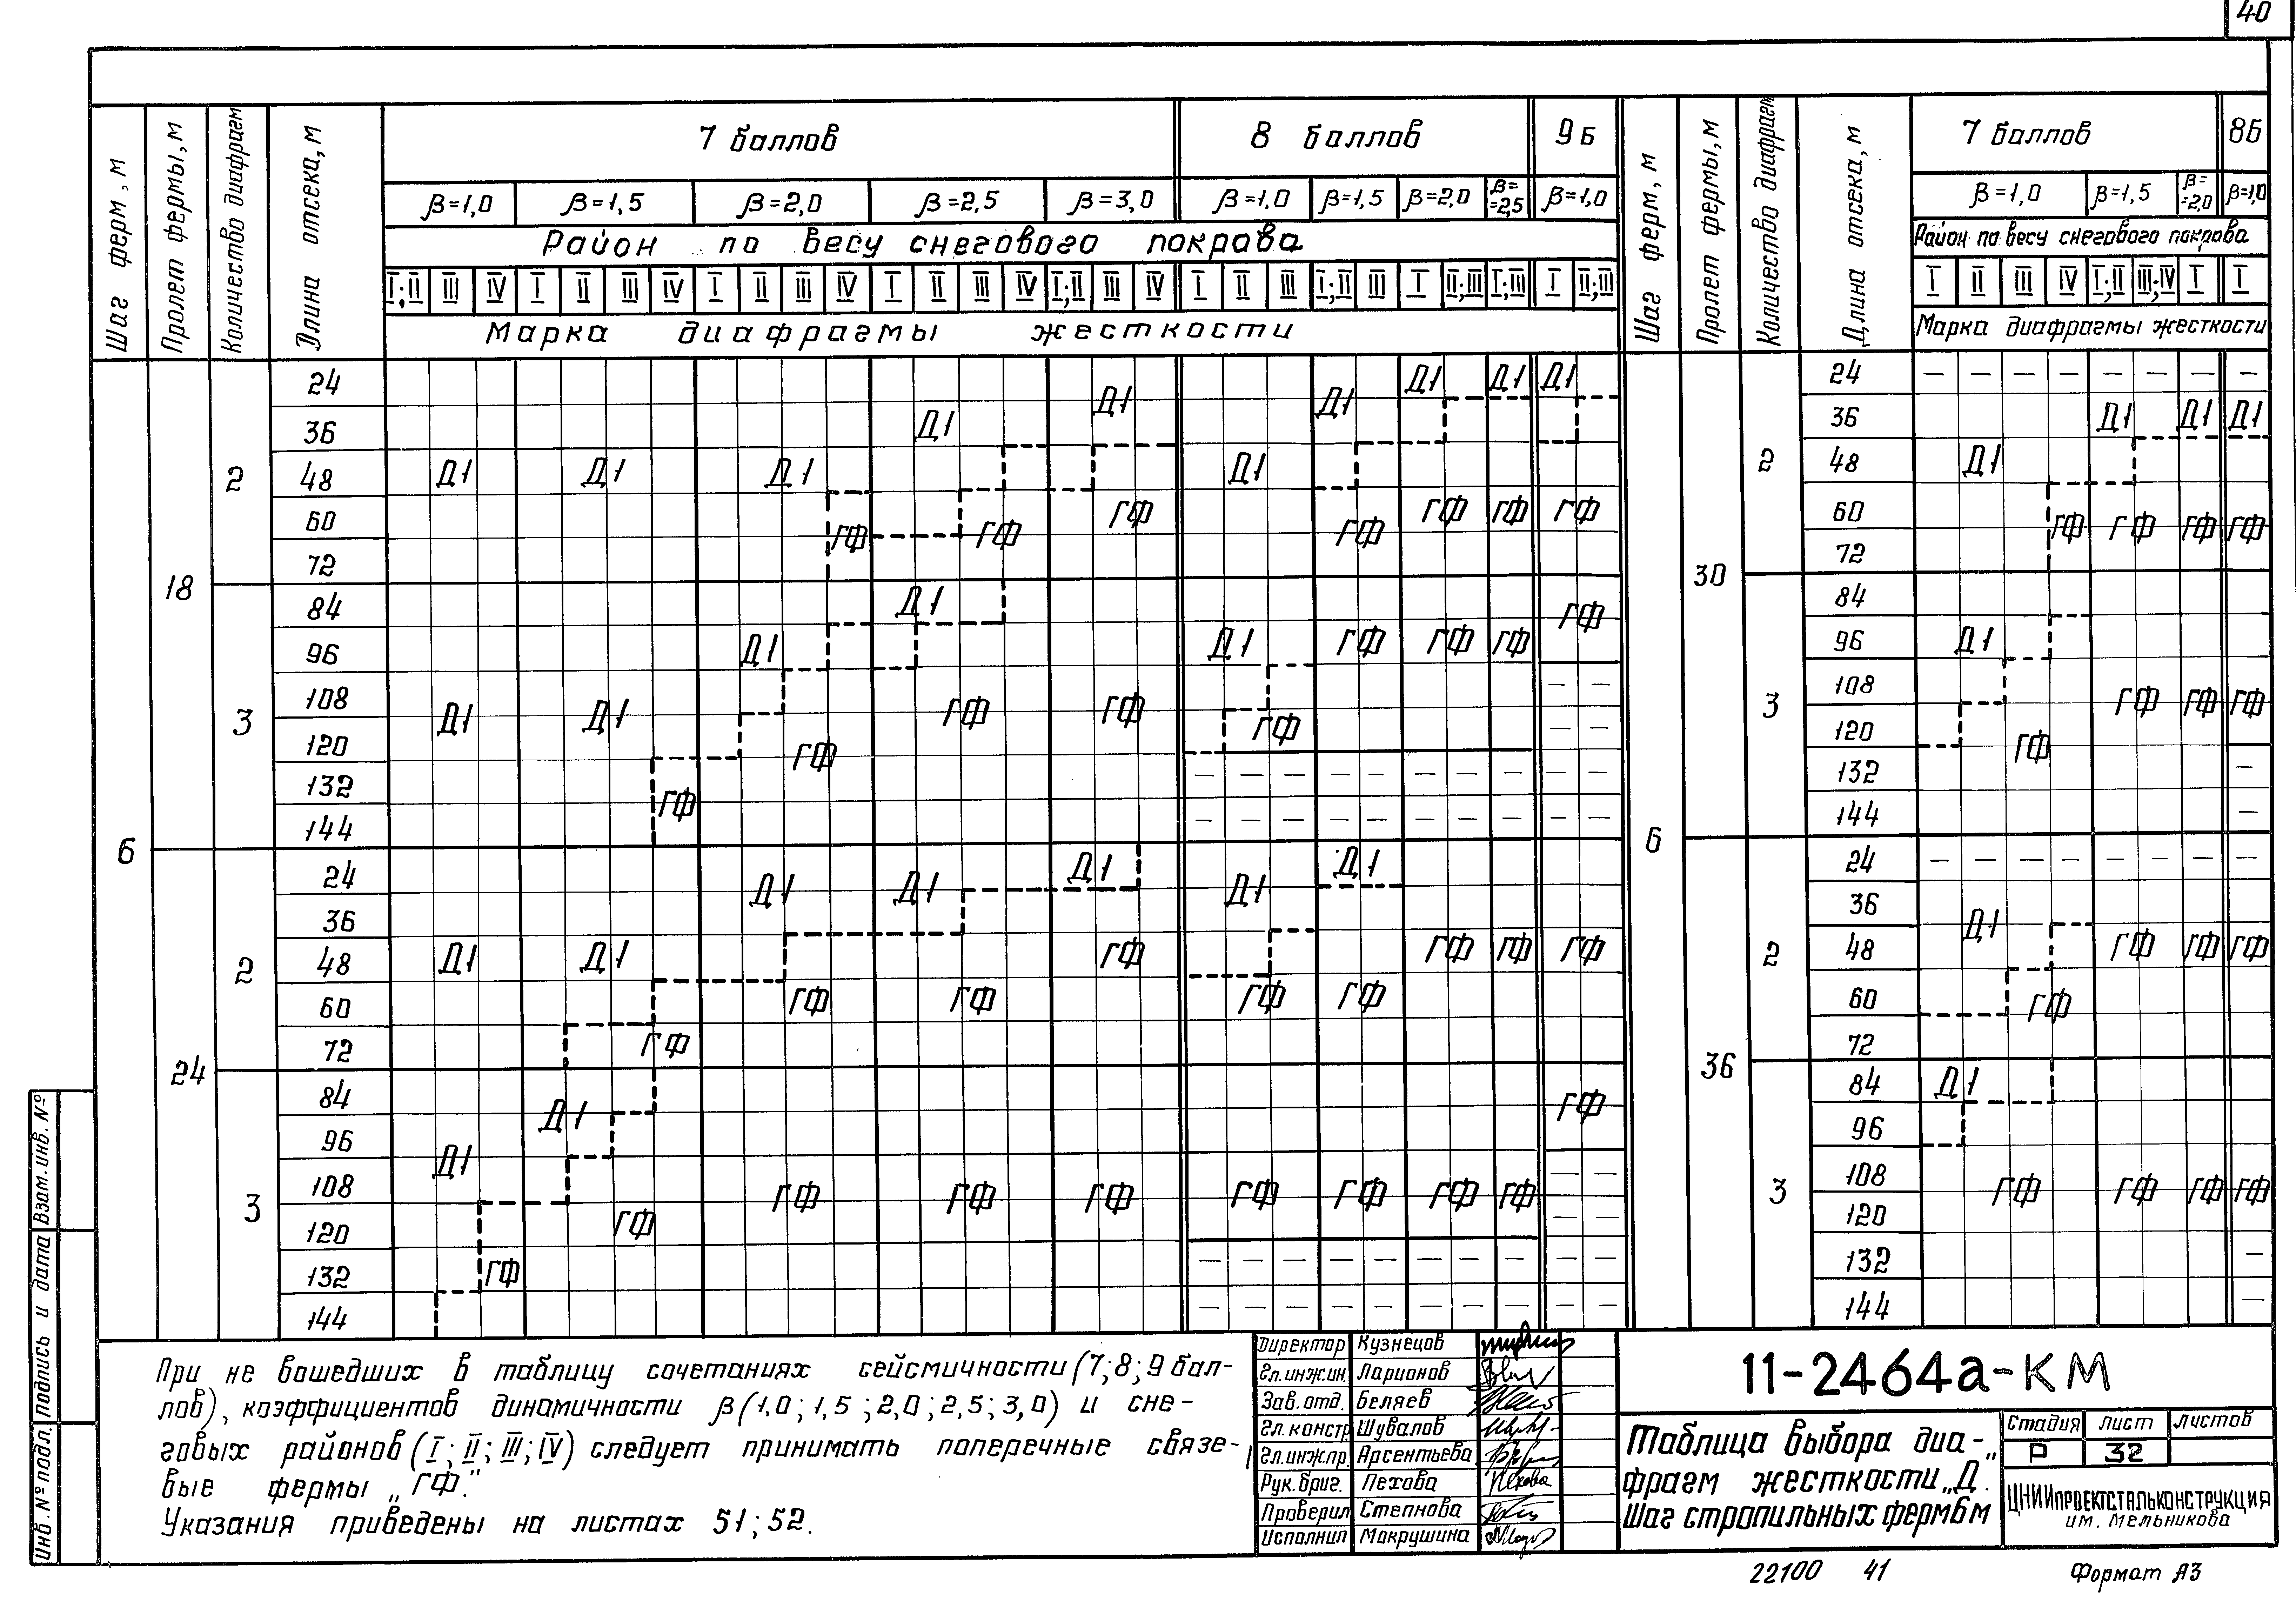 40
Шаг ферм, м
Пролет фермы, м
Количество диафрагм
Длина отсека, м
7 баллов
8 баллов
9Б
Шаг ферм, м
Пролет фермы, м
Количество диафрагм
Длина отсека, м
7 баллов
8Б
β=1,0 β=1,5 β=2,0 β=2,5 β=3,0 β=1,0 β=1,5 β=2,0 β==2,5 β=1,0
β=1,0 β=1,5 β==2,0 β=1,0
Район по весу снегового покрова
Район по весу снегового покрова
I;II III IV I II III IV I II III IV I II III IV I;II III IV I II III I;II III I II;III I;III I II;III
I II III IV I;II III;IV I I
Марка диафрагмы жесткости
Марка диафрагмы жесткости
6
18
2
24
36
48
60
72
Д1 Д1 Д1 Д1 Д1 Д1 Д1 Д1 Д1 Д1
ГФ ГФ ГФ ГФ ГФ ГФ ГФ
3
84
96
108
120
132
144
Д1 Д1 Д1 Д1 Д1
ГФ ГФ ГФ ГФ ГФ ГФ ГФ ГФ ГФ
24
2
24
36
48
60
72
Д1 Д1 Д1 Д1 Д1 Д1 Д1
ГФ ГФ ГФ ГФ ГФ ГФ ГФ ГФ ГФ
3
84
96
108
120
132
144
Д1 Д1
ГФ ГФ ГФ ГФ ГФ ГФ ГФ ГФ ГФ ГФ
6
30
2
24 — — — — — — — —
36
48
60
72
Д1 Д1 Д1 Д1
ГФ ГФ ГФ ГФ
3
84
96
108
120
132
144
Д1
ГФ ГФ ГФ ГФ
36
2
24 — — — — — — — —
36
48
60
72
Д1
ГФ ГФ ГФ ГФ
3
84
96
108
120
132
144
Д1
ГФ ГФ ГФ ГФ
При не вошедших в таблицу сочетаниях сейсмичности (7; 8; 9 бал-
лов), коэффициентов динамичности β (1,0; 1,5; 2,0; 2,5; 3,0) и сне-
говых районов (I; II; III; IV) следует принимать поперечные связе-
вые фермы „ГФ".
Указания приведены на листах 51; 52.
Директор Кузнецов
Гл.инж.ин. Ларионов
Зав.отд. Беляев
Гл.констр. Шувалов
Гл.инж.пр. Арсентьева
Рук.бриг. Пехова
Проверил Степнова
Исполнил Макрушина
11-2464а-КМ
Таблица выбора диа-
фрагм жесткости „Д".
Шаг стропильных ферм 6м
стадия лист листов
Р 32
ЦНИИпроектстальконструкция
им. Мельникова
Взам.инв.№
Подпись и дата
Инв.№ подл.
22100 41
Формат А3